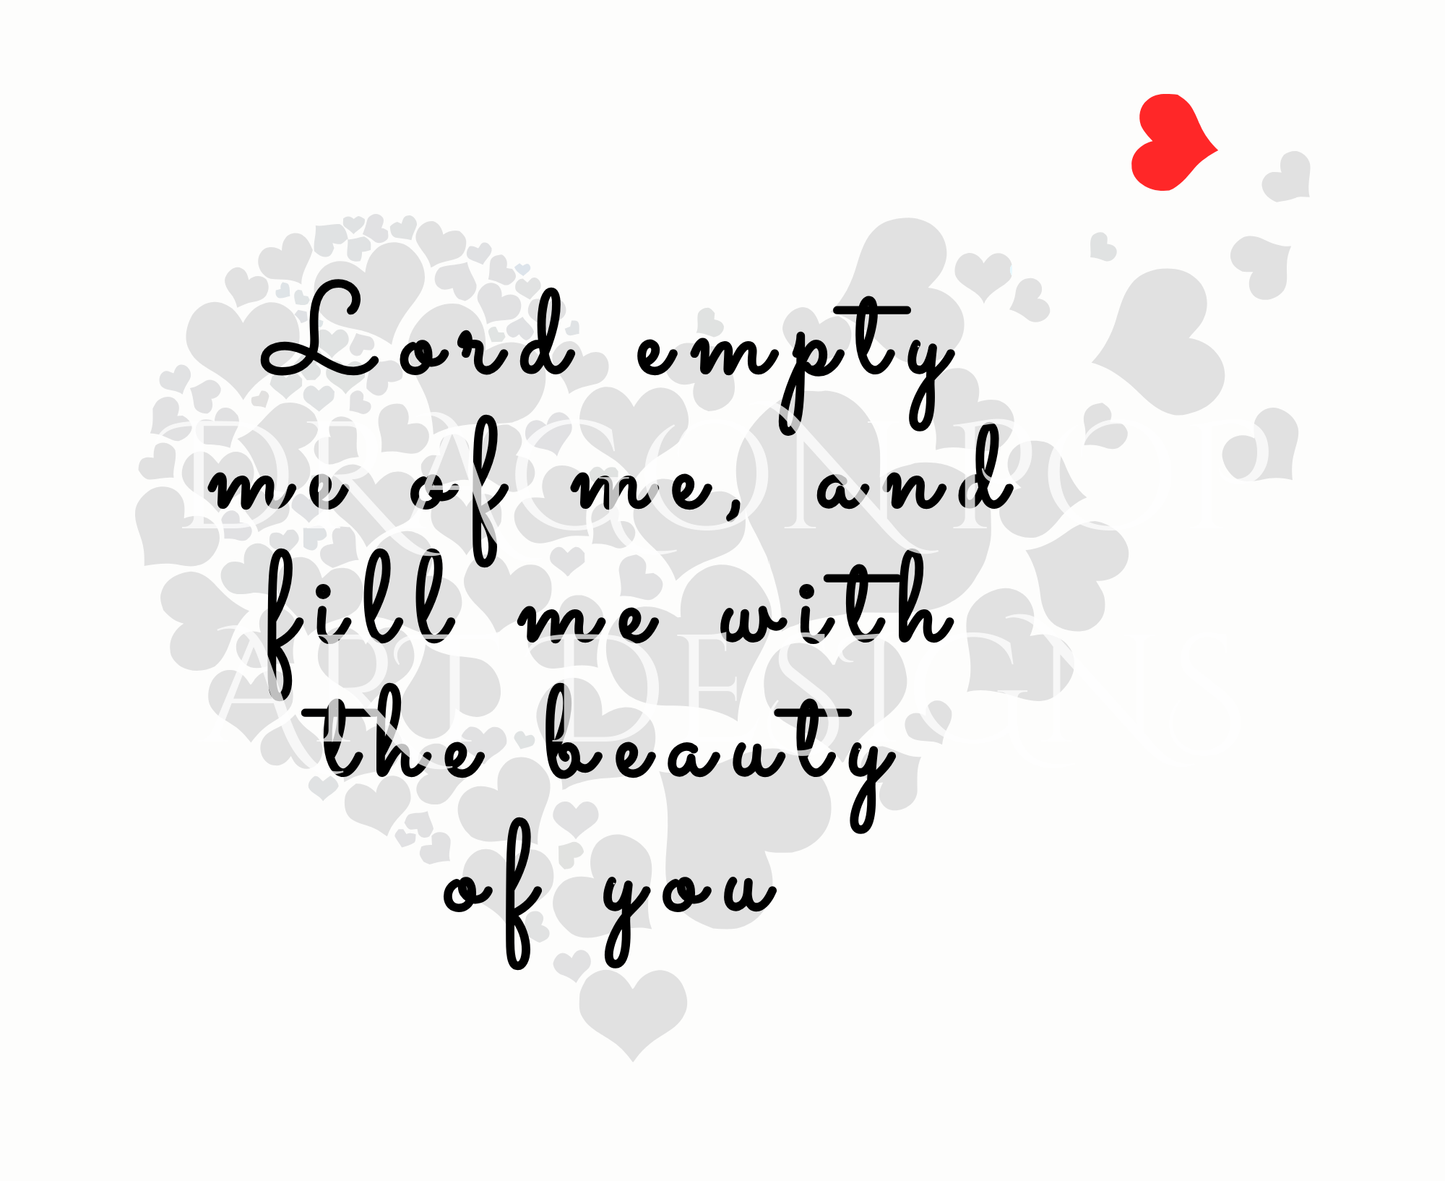 Lord empty
me of me, and
fill me with
the beauty
of you
DRAGON POP
ART DESIGNS